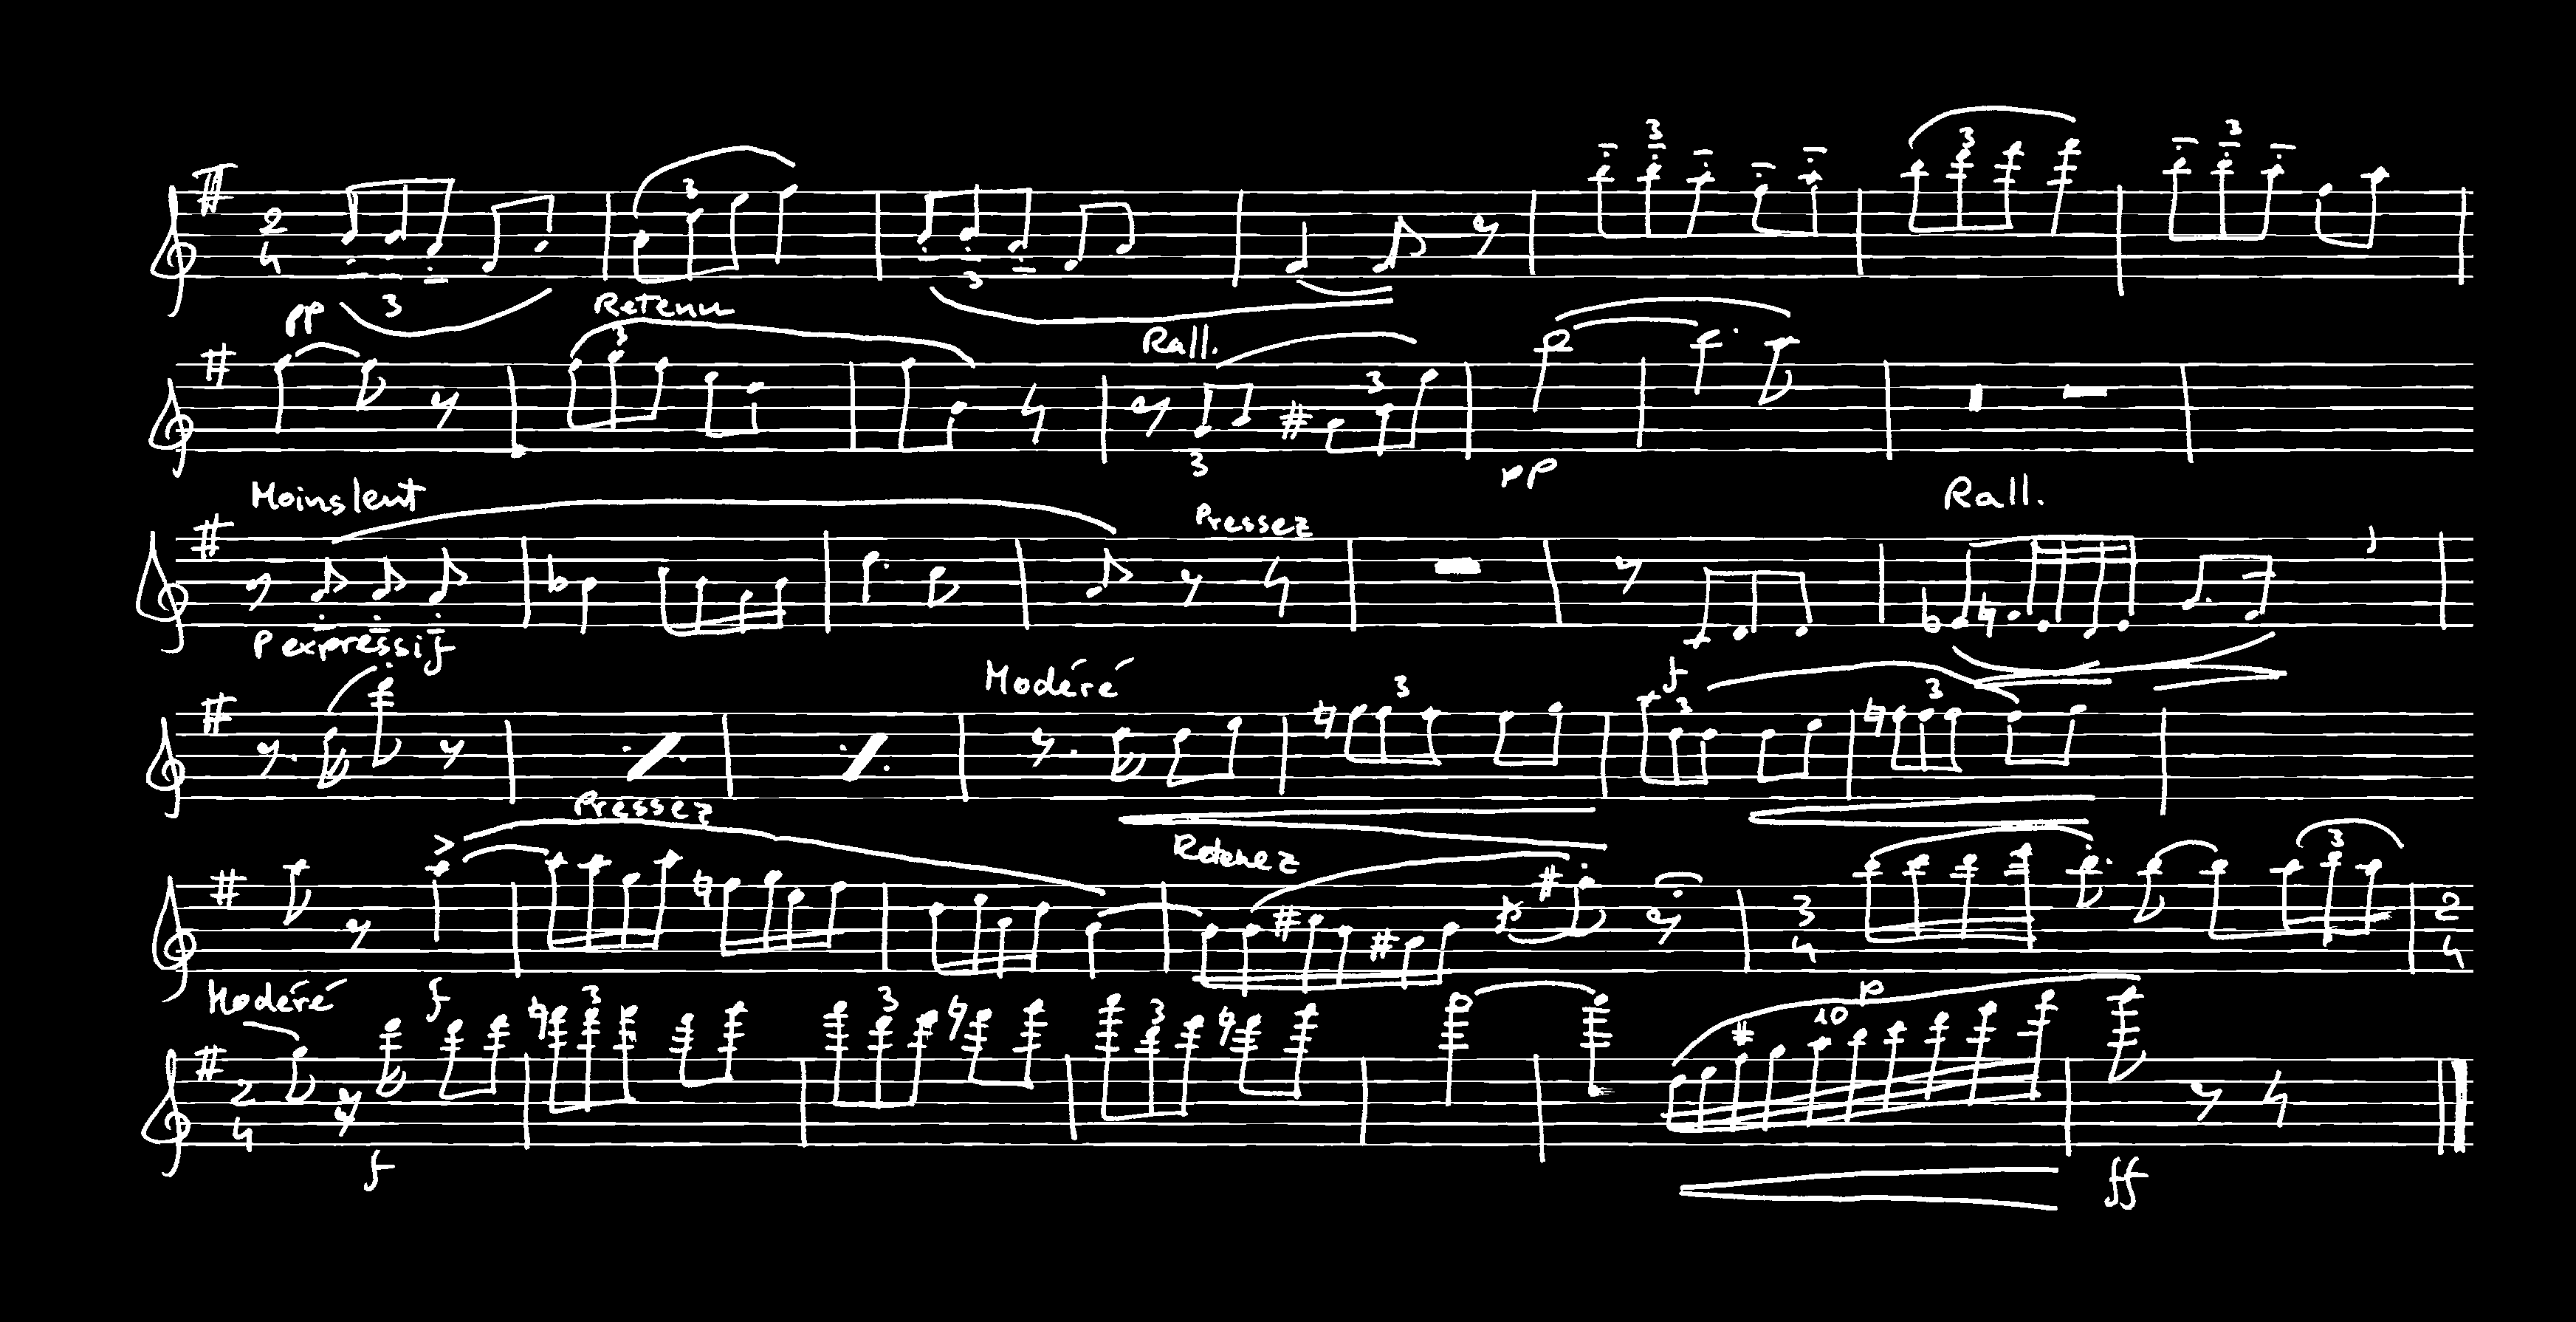 3 3 3
2
4
3 3
pp 3 Retenu
Rall.
3 3
3
pp
Moins lent Pressez Rall.
P expressif
f
Modéré 3 3 3
Pressez
Retenez
3
3 2
4 4
Modéré f
p
3 3 3 10
2
4
f ff